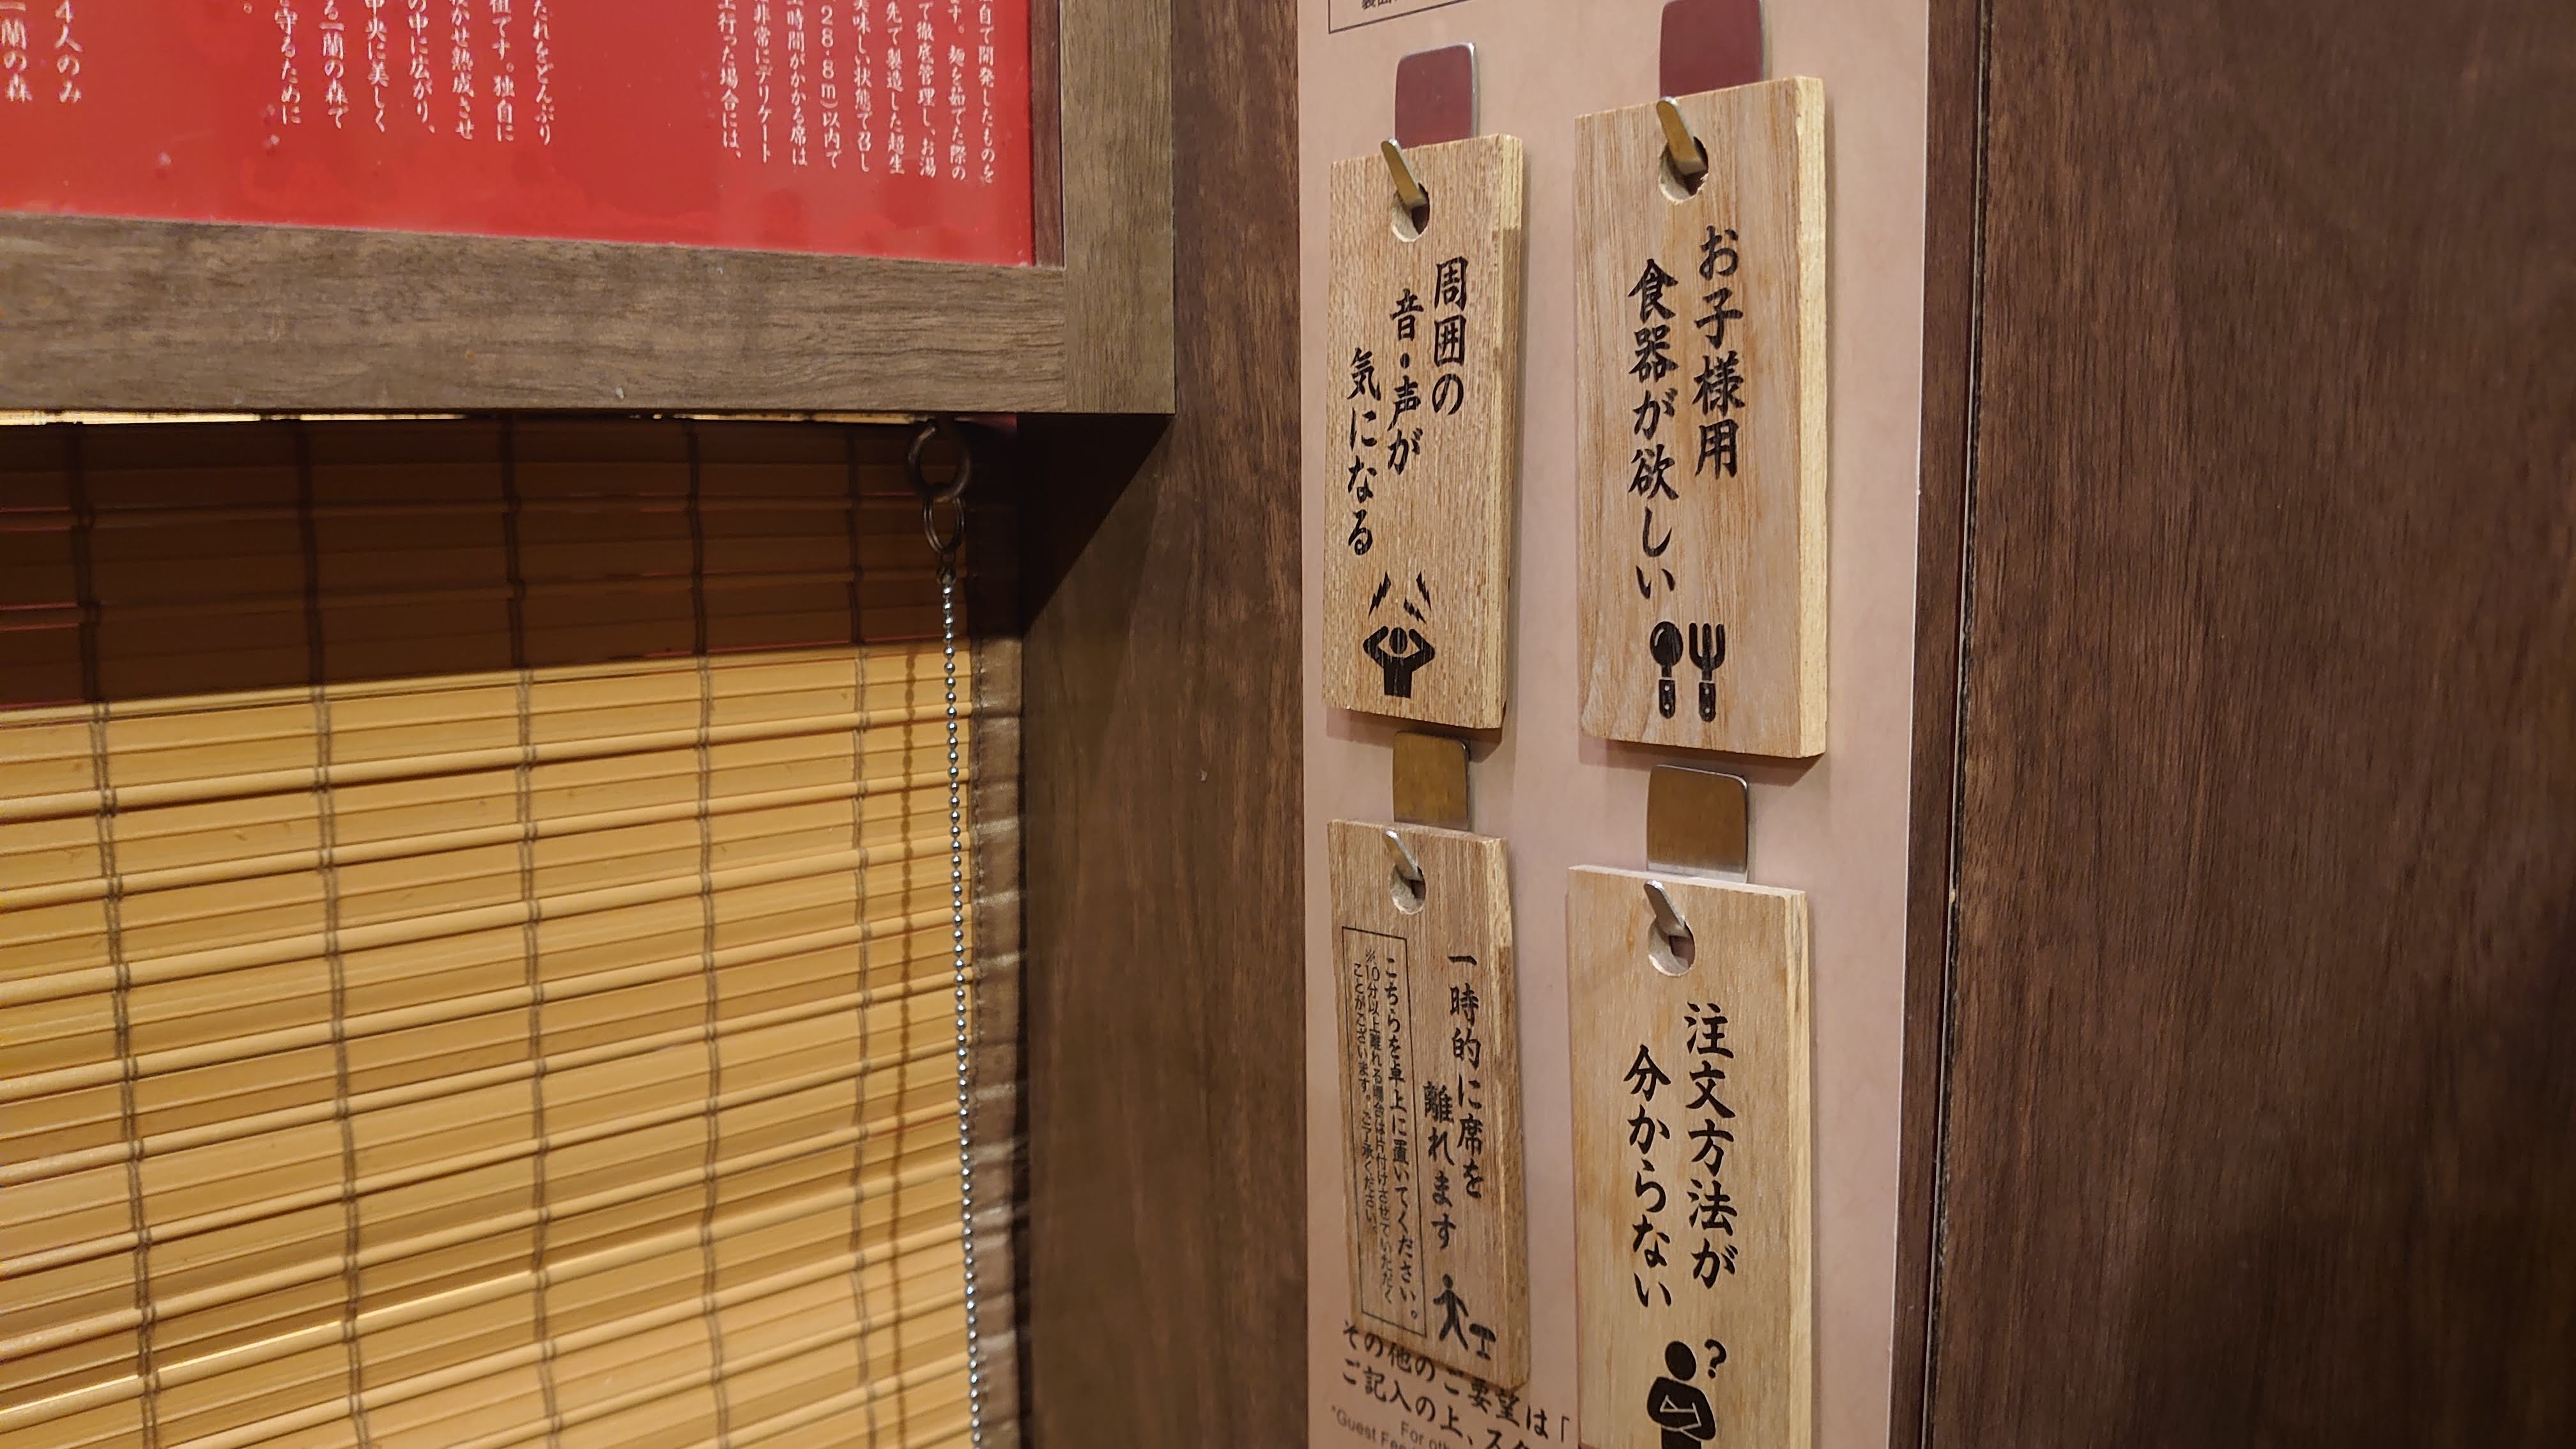 お子様用
食器が欲しい
周囲の
音・声が
気になる
注文方法が
分からない
?
一時的に席を
離れます
こちらを卓上に置いてください。
※10分以上離れる場合は片付けさせていただく
ことがございます。ご了承ください。
その他のご要望は「
ご記入の上、ス
For oth
*Guest Fee
自で開発したものを
ます。麺を茹でた際の
で徹底管理し、お湯
先で製造した超生
美味しい状態で召し
28・8m)以内で
時間がかかる席は
非常にデリケート
行った場合には、
たれをどんぶり
祖です。独自に
かせ熟成させ
の中に広がり、
中央に美しく
る一蘭の森で
守るために
。
4人のみ
一蘭の森